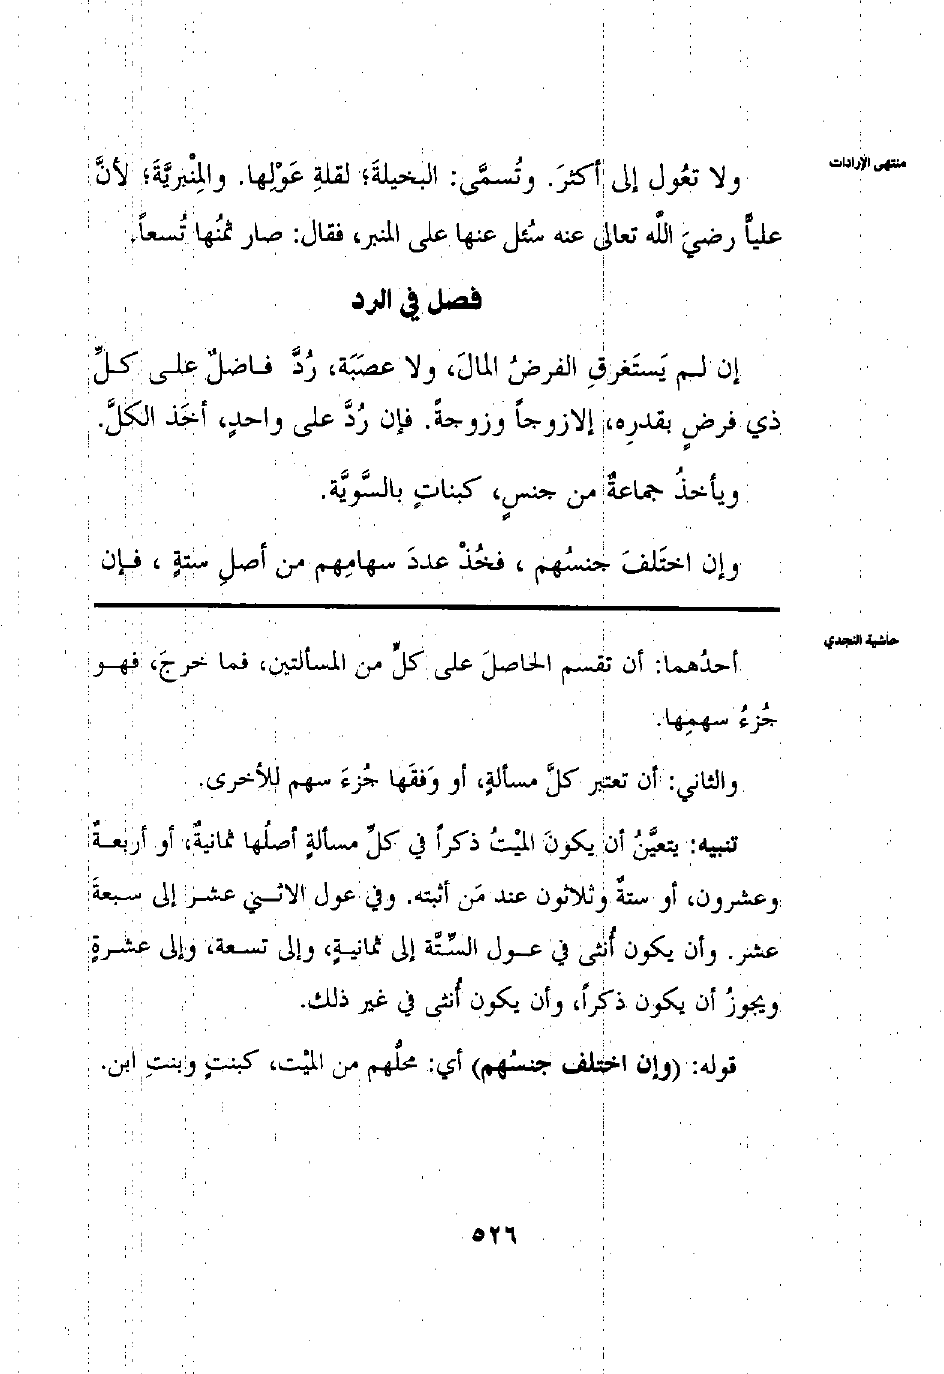 منتهى الإرادات
ولا تعُول إلى أكثرَ. وتُسمَّى: البخيلةَ؛ لقلةِ عَوْلِها. والمِنْبريَّةَ؛ لأنَّ
علياًّ رضيَ اللَّه تعالى عنه سُئل عنها على المنبر، فقال: صار ثمنُها تُسعاً.
فصل في الرد
إن لـم يَستَغرقِ الفرضُ المالَ، ولا عصَبَة، رُدَّ فـاضلٌ علـى كـلِّ
ذي فرضٍ بقدرِه، إلازوجاً وزوجةً. فإن رُدَّ على واحدٍ، أخَذ الكلَّ.
ويأخذُ جماعةٌ من جنسٍ، كبناتٍ بالسَّويَّة.
وإن اختَلفَ جنسُهم ، فخُذْ عددَ سهامِهم من أصلِ ستةٍ ، فـإن
حاشية النجدي
أحدُهما: أن تقسم الحاصلَ على كلٍّ من المسألتين، فما خرجَ، فهـو
جُزءُ سهمِها.
والثاني: أن تعتبر كلَّ مسألةٍ، أو وَفقَها جُزءَ سهم للأخرى.
تنبيه: يتعيَّنُ أن يكونَ الميْتُ ذكراً في كلِّ مسألةٍ أصلُها ثمانيةٌ، أو أربعـةٌ
وعشرون، أو ستةٌ وثلاثون عند مَن أثبته. وفي عول الاثـني عشـر إلى سبعةَ
عشر. وأن يكون أُنثى في عـول السِّتَّة إلى ثمانيـةٍ، وإلى تسعة، وإلى عشـرةٍ
ويجوزُ أن يكون ذكراً، وأن يكون أُنثى في غير ذلك.
قوله: (وإن اختلف جنسُهم) أي: محلُّهم من الميْت، كبنتٍ وبنتِ ابن.
٥٢٦